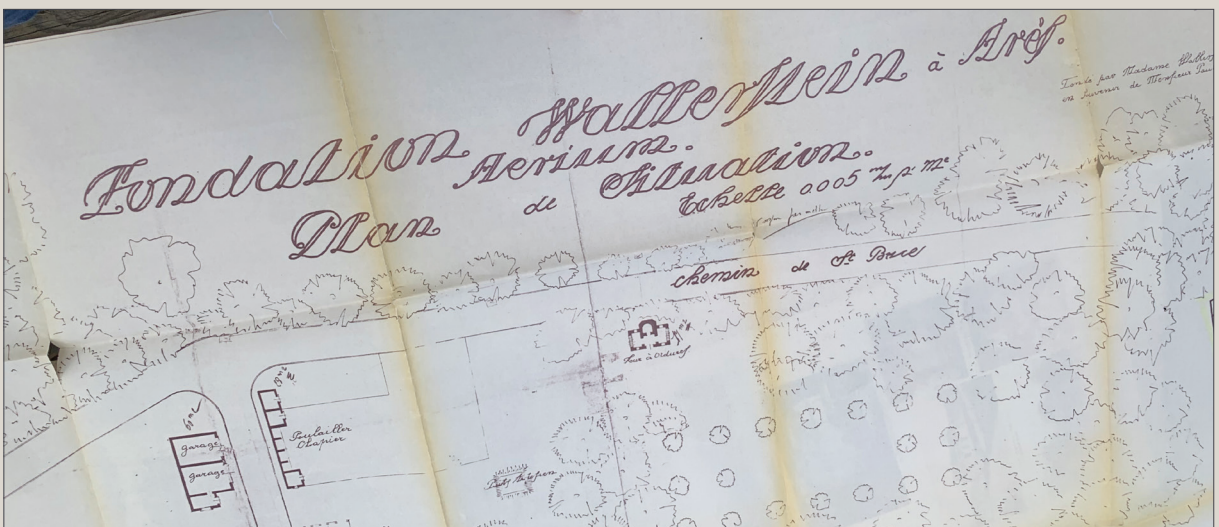 Fondation Wallerstein à Arès.
Aerium.
Plan de Situation.
Echelle 0.005 m/m p. Me
Fondé par Madame
en Souvenir de Monsieur
chemin de St Brice
Four à Ordures
Poulailler
Clapier
garage
garage